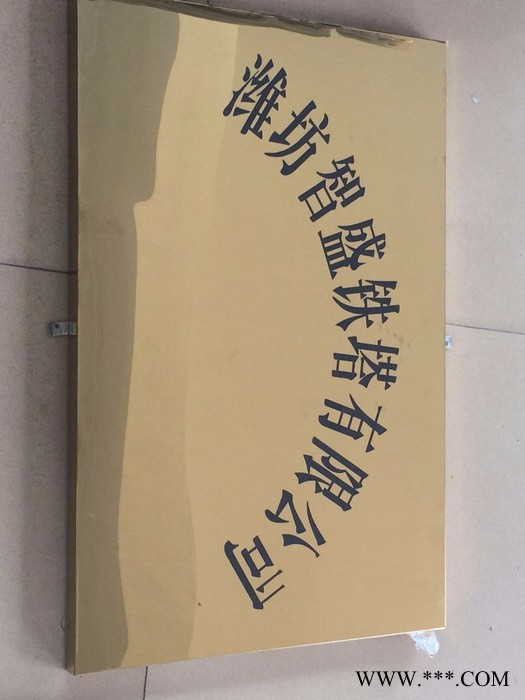 潍坊智盛铁塔有限公司
WWW.***.COM